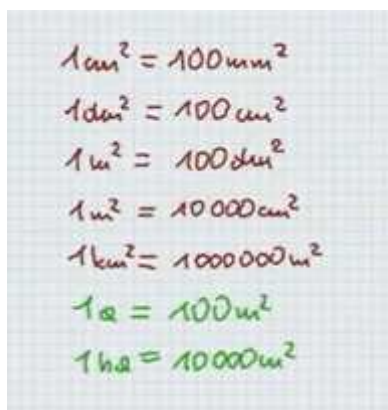 1cm² = 100mm²
1dm² = 100cm²
1m² = 100dm²
1m² = 10000cm²
1km² = 1000000m²
1a = 100m²
1ha = 10000m²